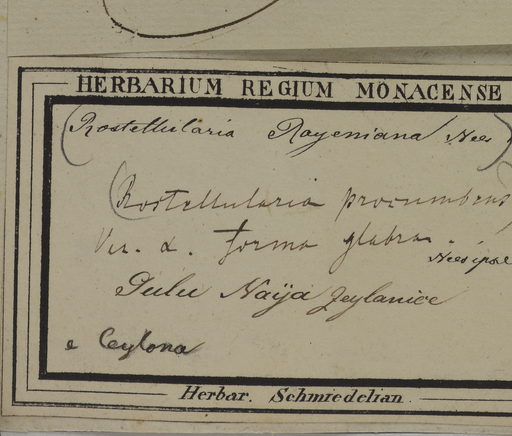 HERBARIUM REGIUM MONACENSE
(Rostellularia Royeniana Nees)
(Rostellularia procumbens
Var. α. forma glabra.
Nees ipse
Pulu Naija Zeylanice
e Ceylona
Herbar. Schmiedelian.